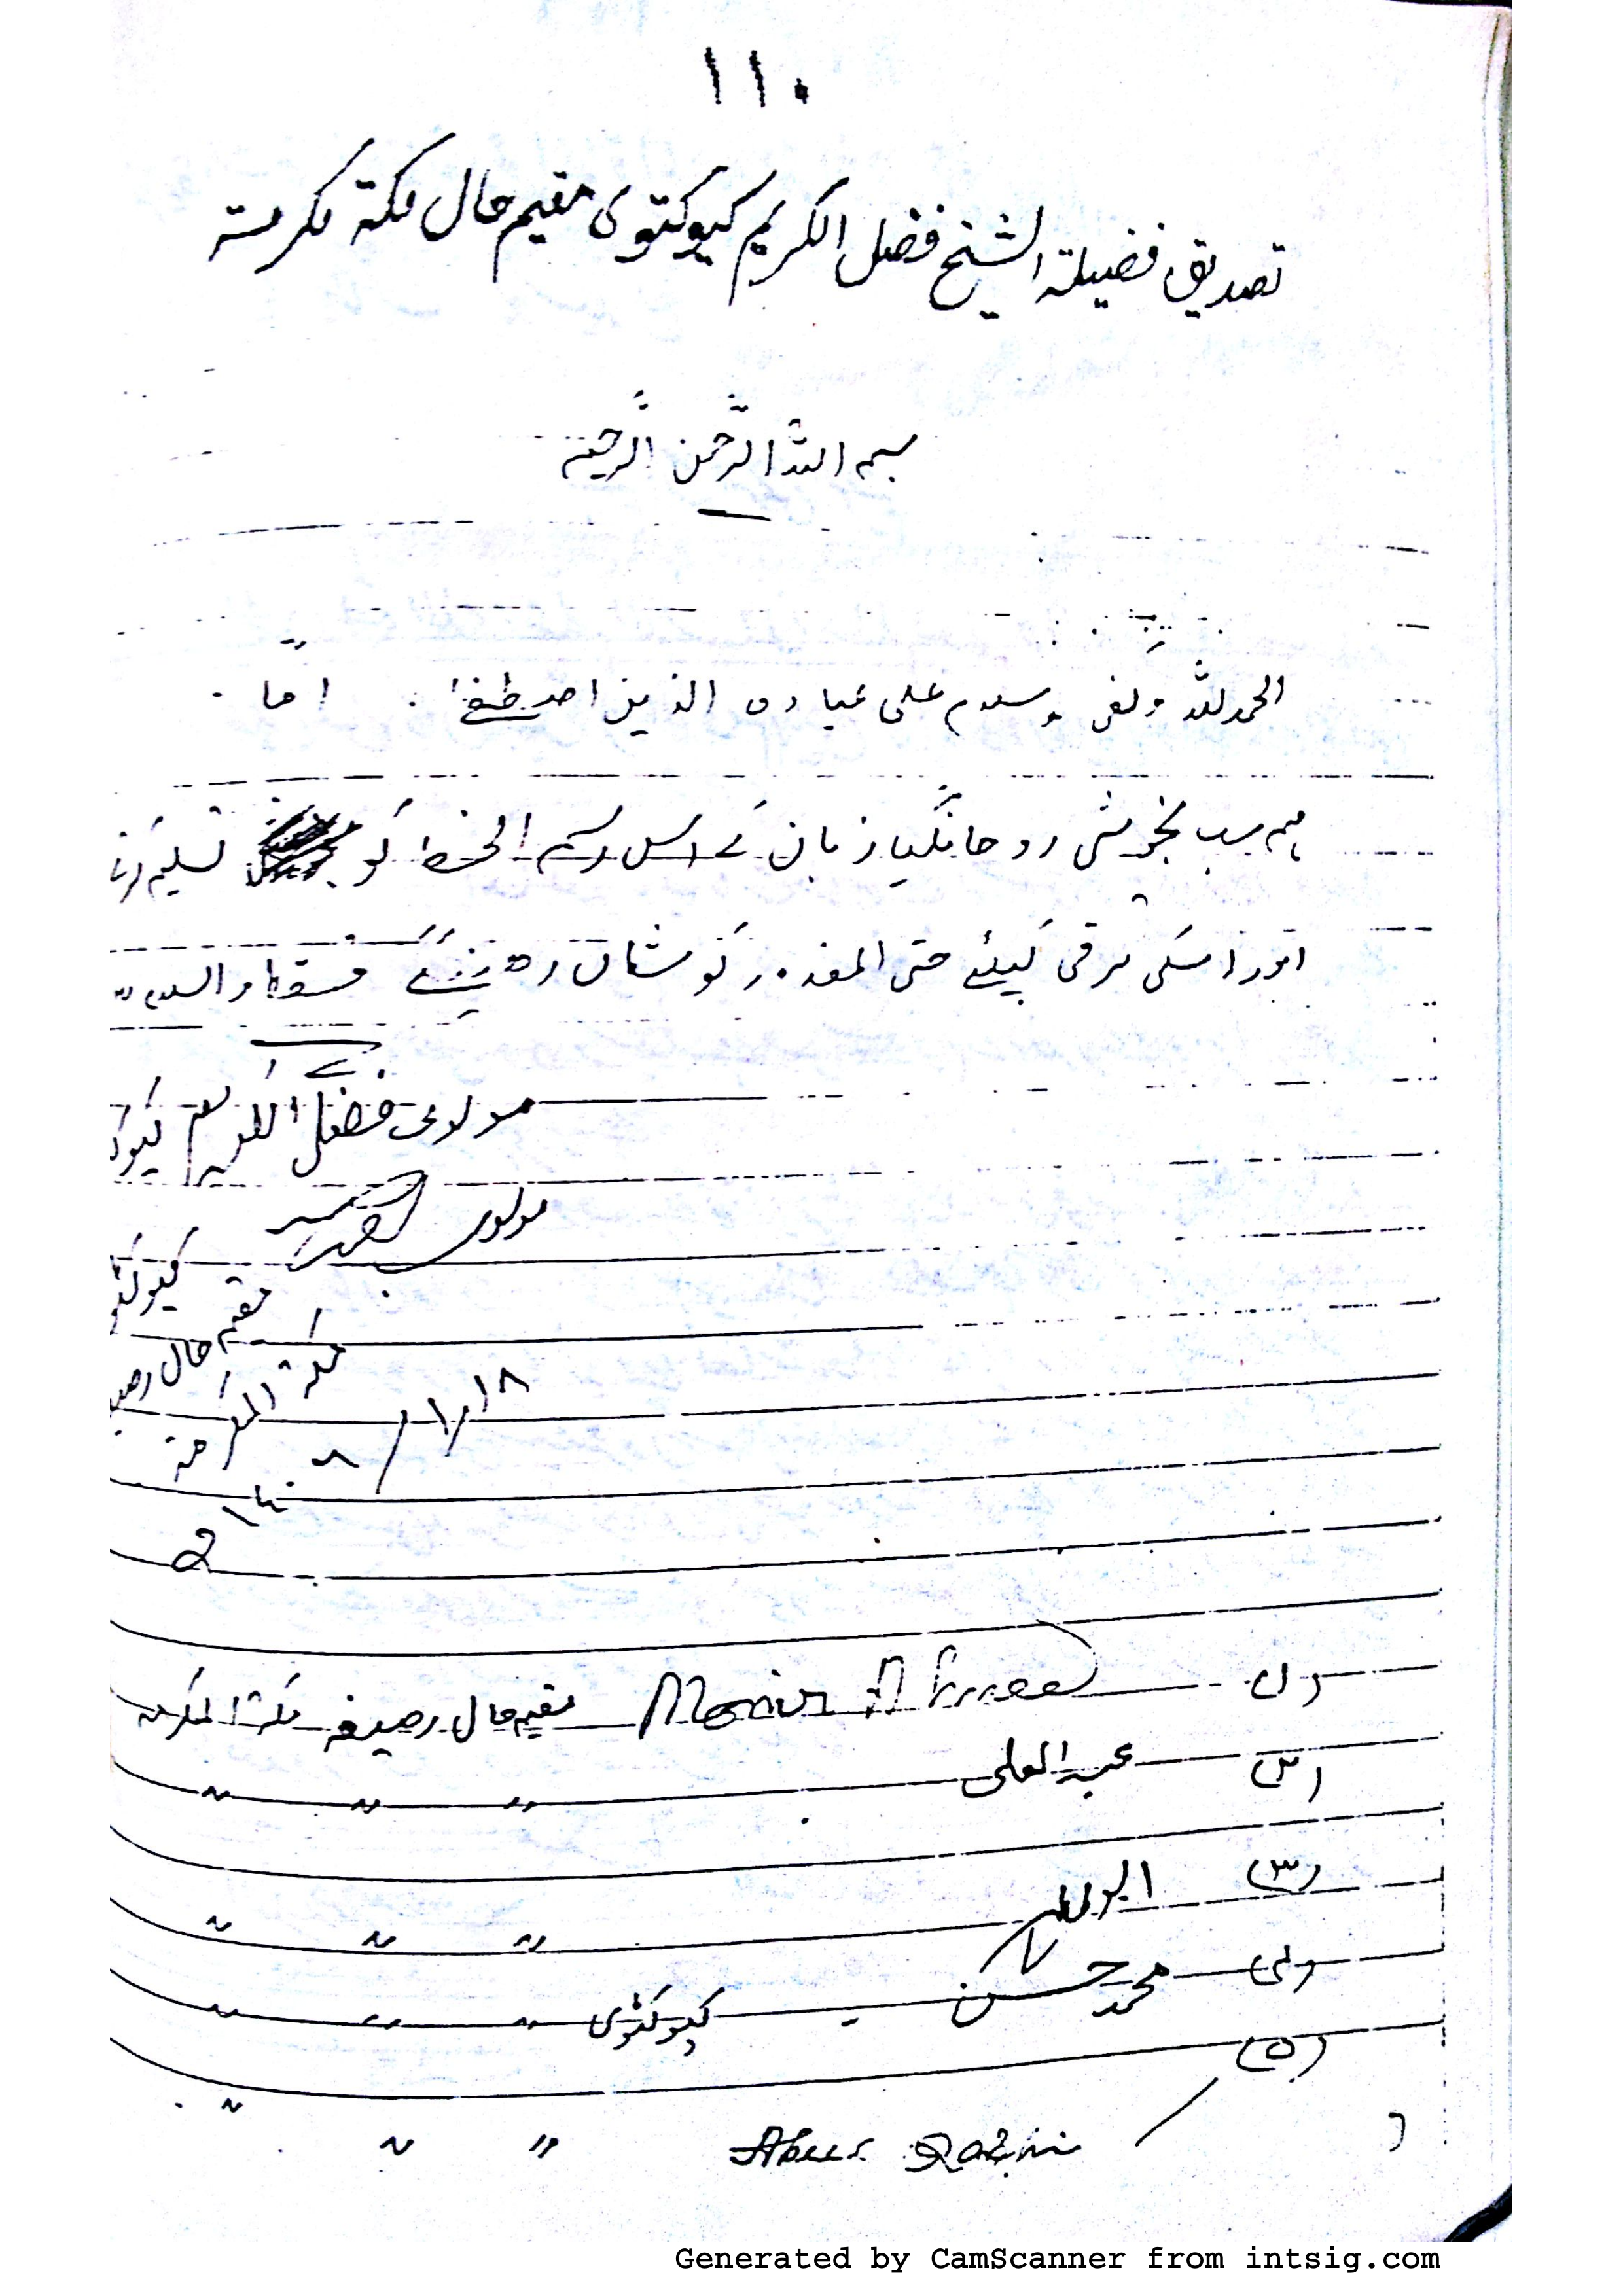 ۱۱۰
تصدیق فضیلۃ الشیخ فضل الکریم کیوکتوی مقیم حال مکۃ مکرمۃ
بسم اللہ الرّحمن الرّحیم
الحمد للہ وکفی وسلام علی عبادہ الذین اصطفیٰ . امّا
ہم سب بخوشی روحانگیا زبان کے اس رسم الخط کو تسلیم کرتے
اور اسکی ترقی کیلئے حتی المقدور کوشاں رہینگے فقط والسلام
مولوی فضل الکریم
مولوی
مقیم حال
مکۃ المکرمۃ
۱۸/۱/۱۴۰۸ھ
(۱) Monir Ahmed مقیم حال رصیفہ مکۃ المکرمہ
(۲) عبد العلی 〃 〃 〃
(۳) 〃 〃 〃
(۴) محمد حسن - کیوکٹوی 〃 〃 〃
(۵)
〃 〃 〃
Generated by CamScanner from intsig.com